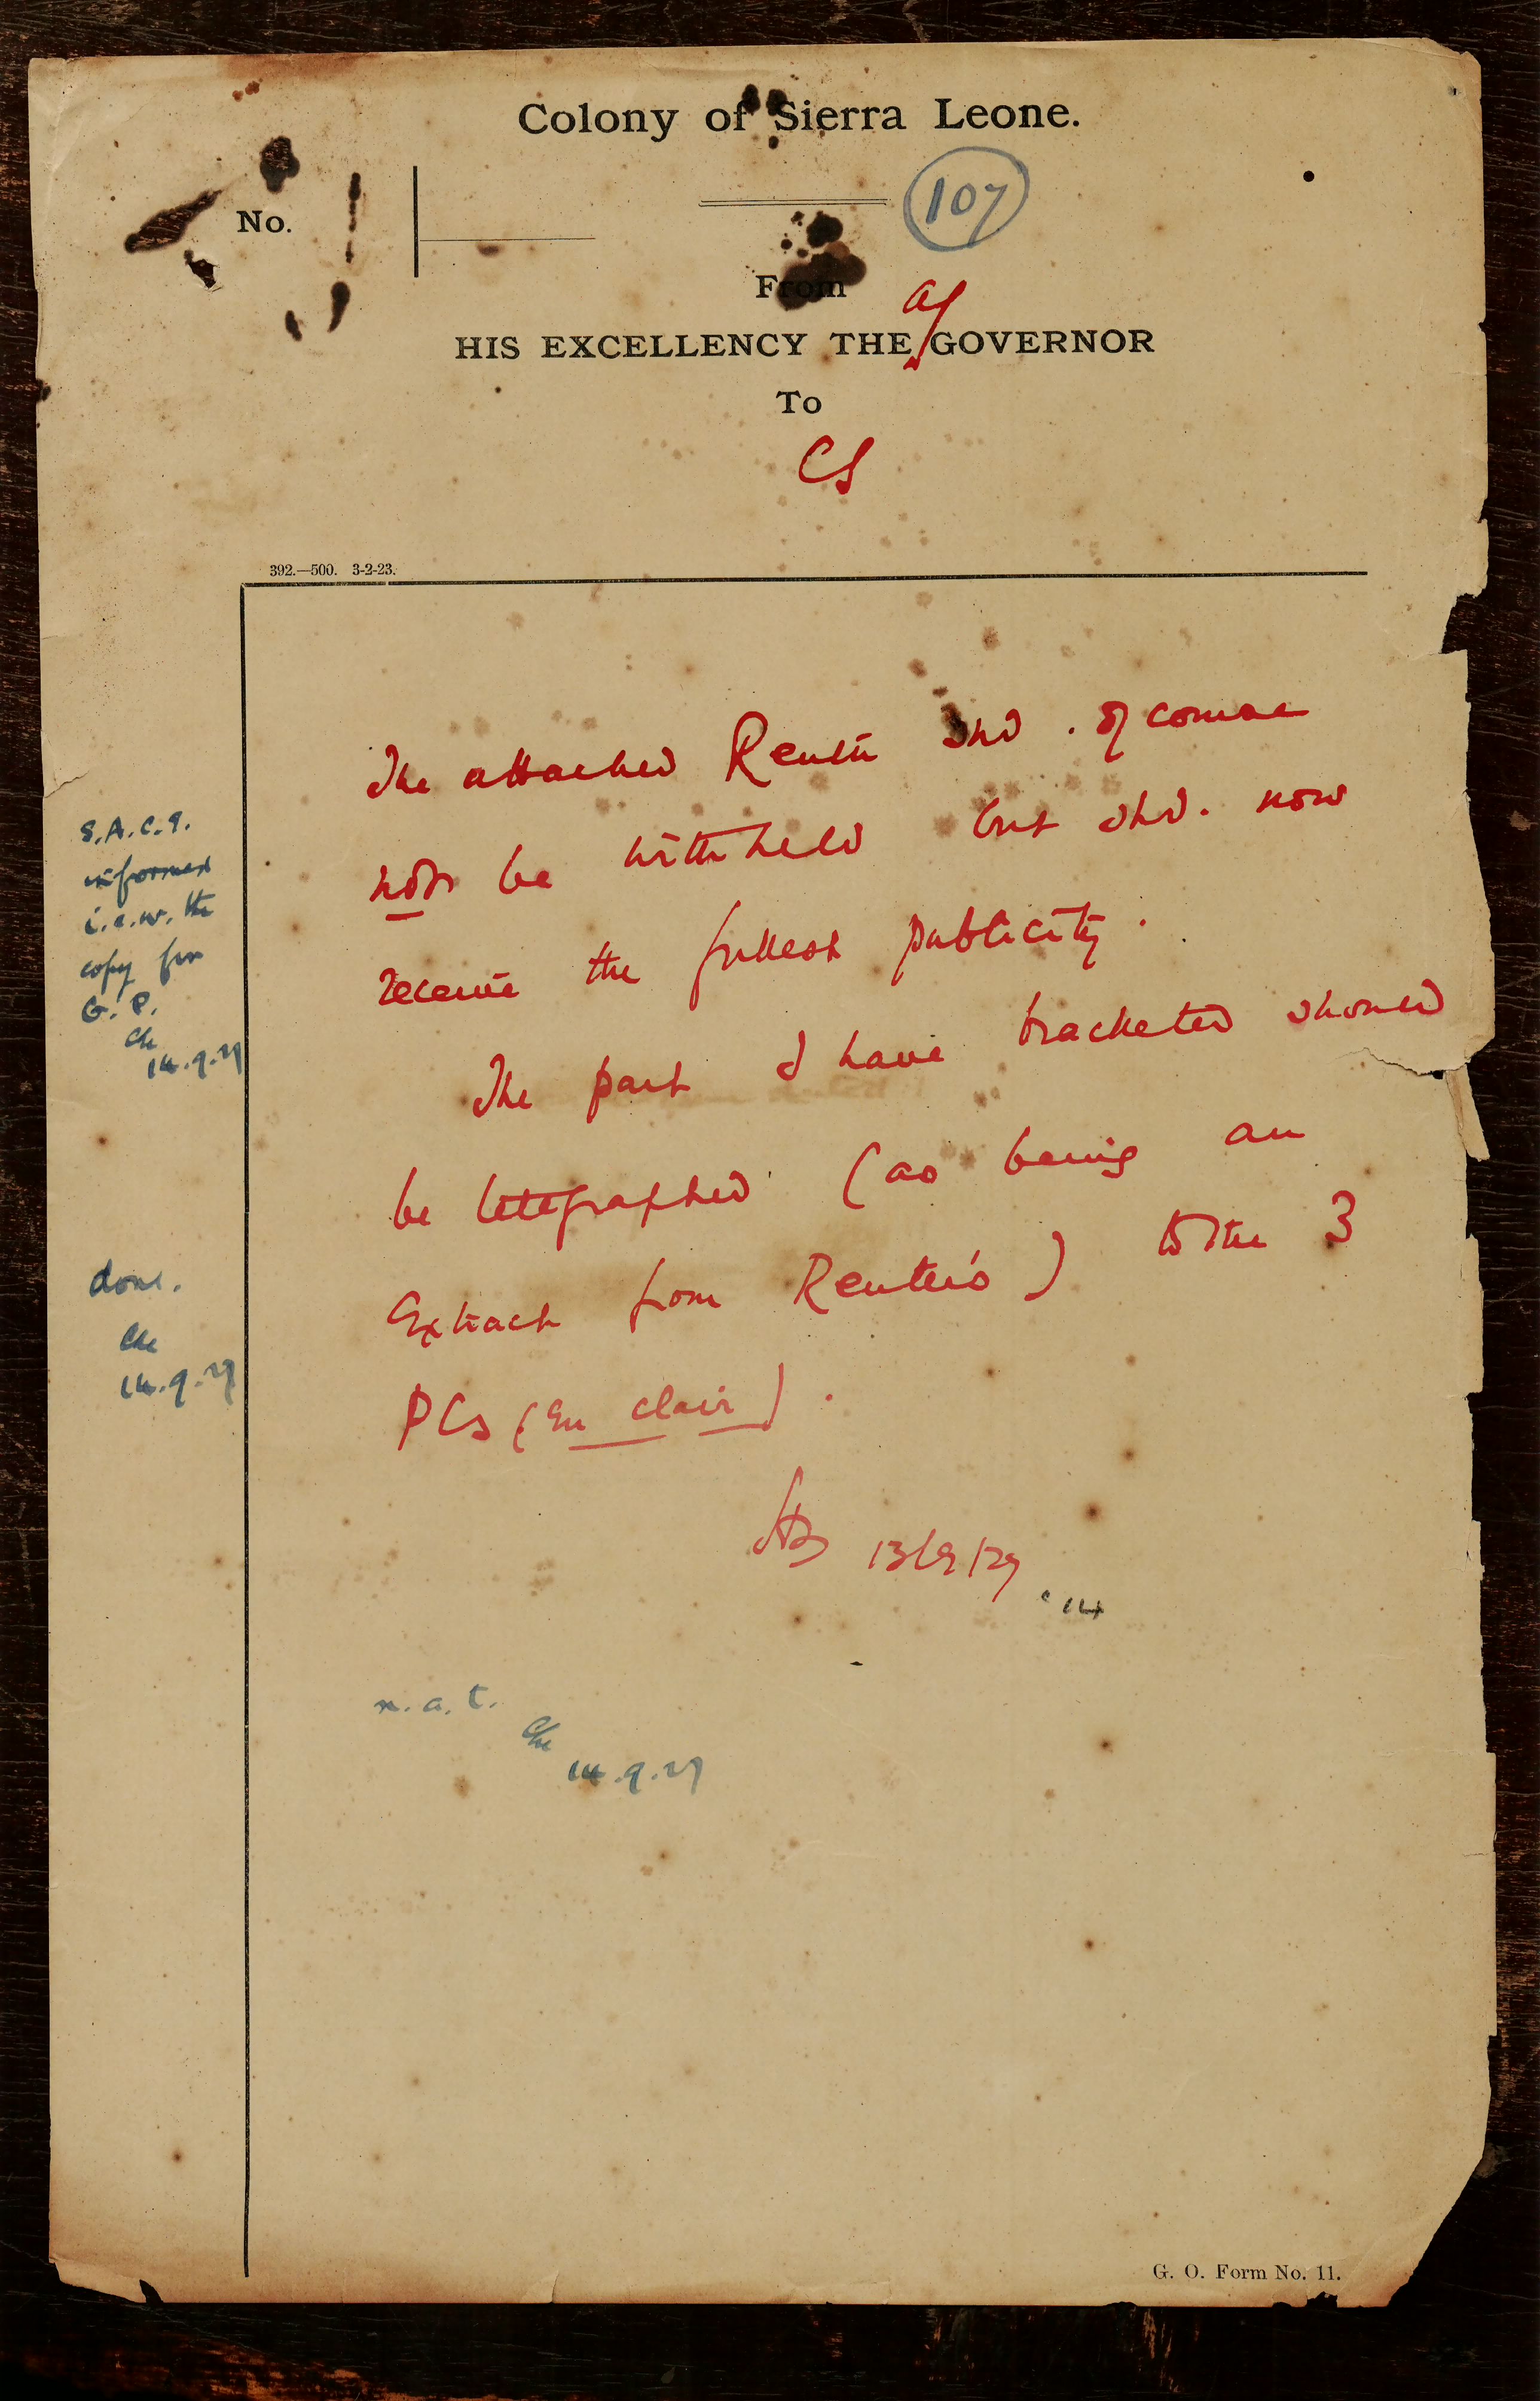 Colony of Sierra Leone.
107
No.
From
ag
HIS EXCELLENCY THE GOVERNOR
To
CS
392.—500. 3-2-23.
The attached Reuter shd. of course
not be withheld but shd. now
receive the fullest publicity.
The part I have bracketed should
be telegraphed (as being an
Extract from Reuter's) to the 3
PCs (En clair).
13/9/27
14
S.A.C.S.
informed
i.c.w. the
copy for
G.P.
14.9.27
done.
14.9.27
n.a.t.
14.9.27
G. O. Form No. 11.